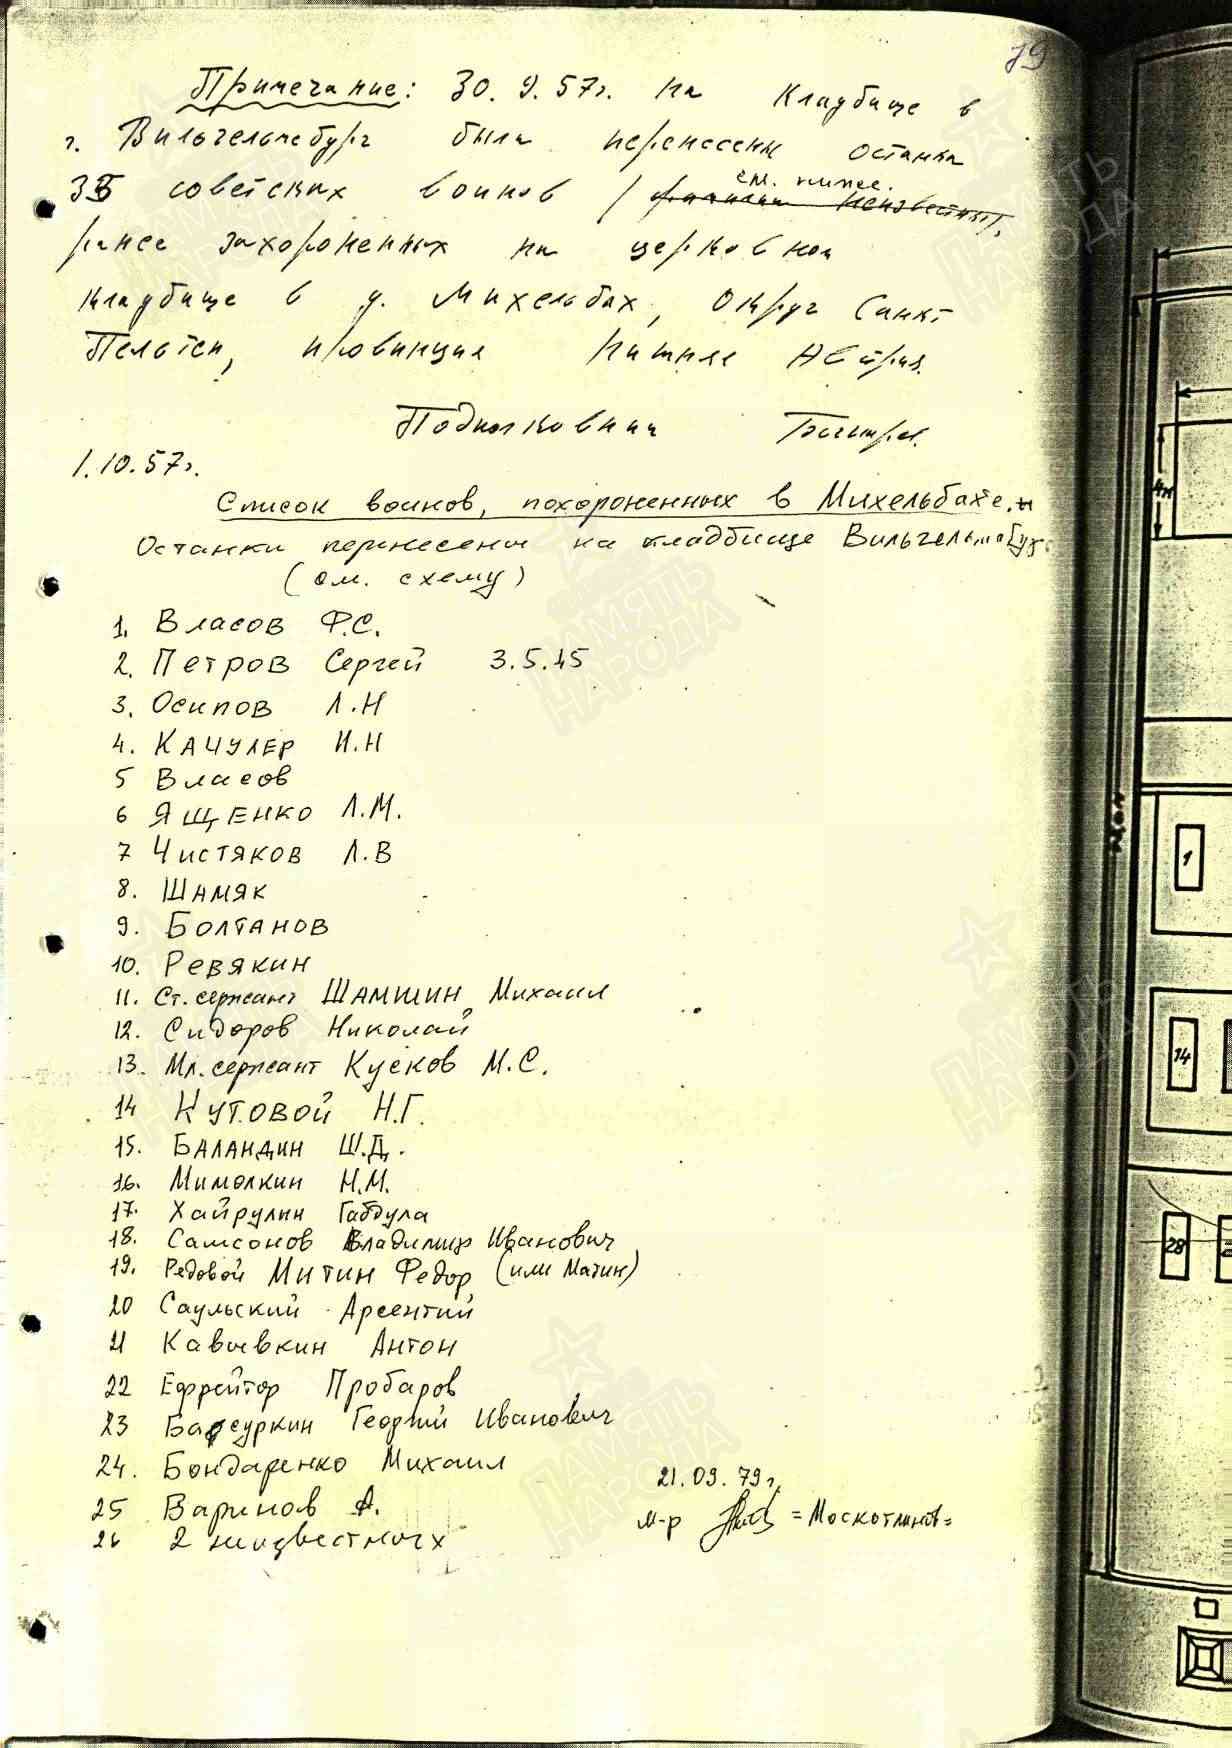 79
Примечание: 30. 9. 57г. на кладбище в
г. Вильгельмсбург были перенесены останки
советских воинов / см. ниже.
неизвестны),
ранее захороненных на церковном
кладбище в д. Михельбах, округ Санкт
Пельтен, провинция Нижняя Австрия.
Подполковник
1.10.57г.
Список воинов, похороненных в Михельбахе.
Останки перенесены на кладбище Вильгельмсбург
(см. схему)
1. Власов Ф.С.
2. Петров Сергей 3.5.45
3. Осипов Л.Н
4. КАЧУЛЕР И.Н
5 Власов
6 ЯЩЕНКО Л.М.
7 Чистяков Л.В
8. Шамяк
9. Болтанов
10. Ревякин
11. Ст. сержант ШАМШИН Михаил
12. Сидоров Николай
13. Мл. сержант Кусков М.С.
14 Кутовой Н.Г.
15. Баландин Ш.Д.
16. Мимолкин Н.М.
17. Хайрулин Габдула
18. Самсонов Владимир Иванович
19. Рядовой Митин Федор (или Матин)
20 Саульский Арсентий
21 Кавывкин Антон
22 Ефрейтор Пробаров
23 Барсуркин Георгий Иванович
24. Бондаренко Михаил
25 Варинов А.
26 2 неизвестных
21.09.79г.
м-р =Москотлинов=
4м
1
14
28